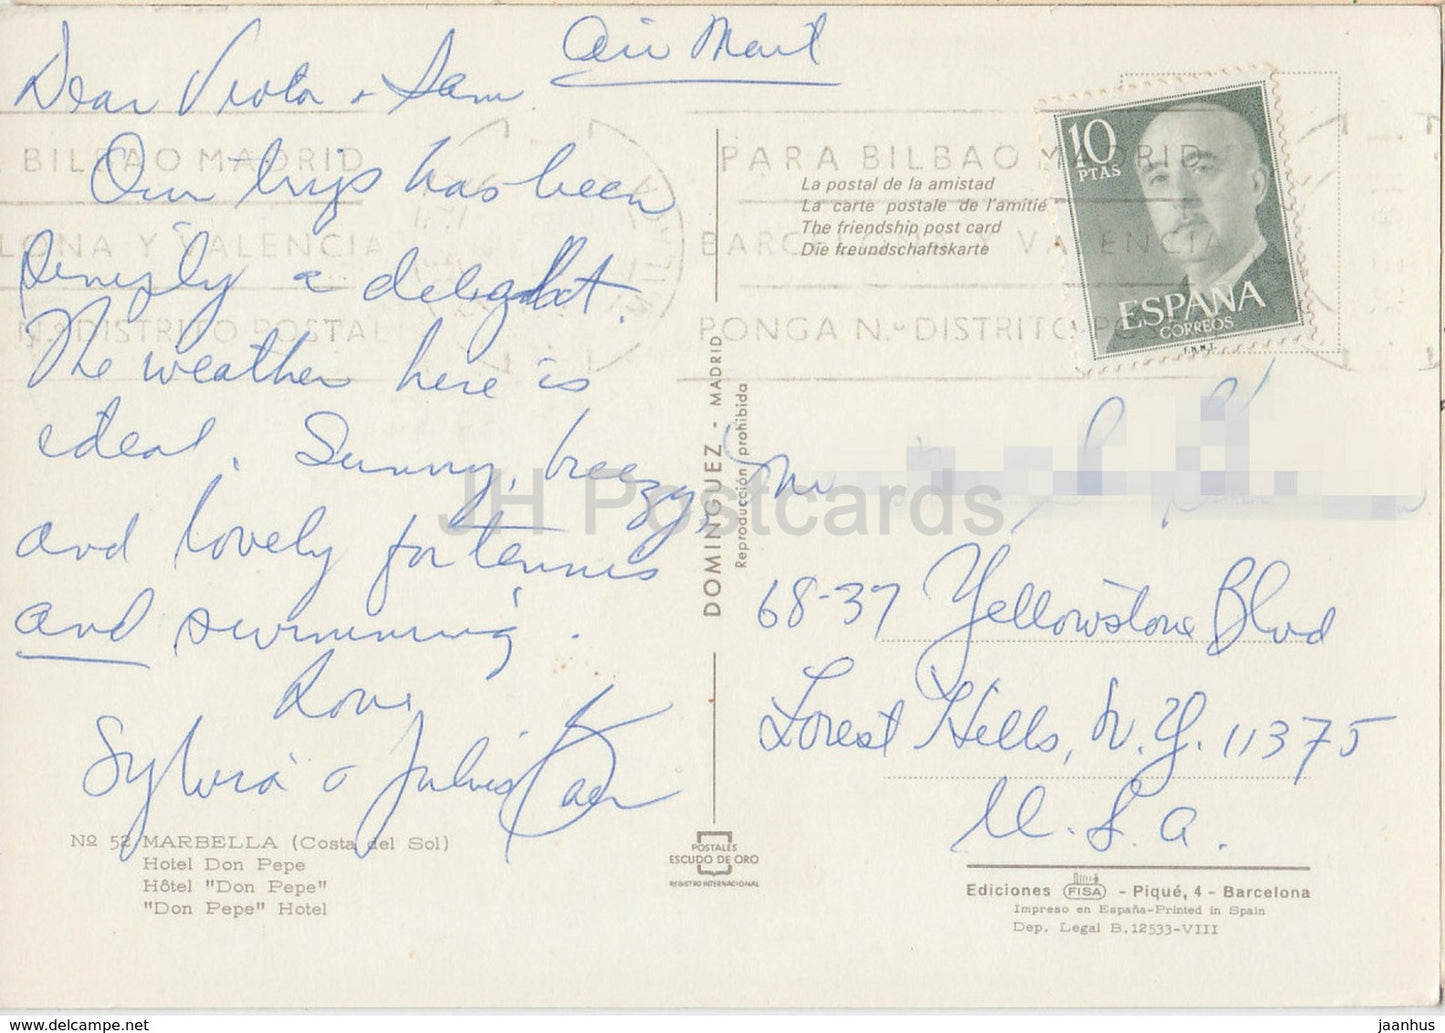 Air Mail
Dear Viola & Sam
Our trip has been
simply a delight.
The weather here is
ideal. Sunny, breezy,
and lovely for tennis
and swimming.
Love
Sylvia & Julius
Nº 52 MARBELLA (Costa del Sol)
Hotel Don Pepe
Hôtel "Don Pepe"
"Don Pepe" Hotel
BILBAO MADRID
LONA Y VALENCIA
N.º DISTRITO POSTAL
DOMINGUEZ - MADRID
Reproducción prohibida
POSTALES
ESCUDO DE ORO
REGISTRO INTERNACIONAL
PARA BILBAO MADRID
BARCELONA Y VALENCIA
PONGA N.º DISTRITO PO
La postal de la amistad
La carte postale de l'amitié
The friendship post card
Die freundschaftskarte
10
PTAS
ESPAÑA
CORREOS
F.N.M.T.
68-37 Yellowstone Blvd
Forest Hills, N.Y. 11375
U.S.A.
Ediciones FISA - Piqué, 4 - Barcelona
Impreso en España-Printed in Spain
Dep. Legal B. 12533-VIII
JH Postcards
www.delcampe.net
jaanhus